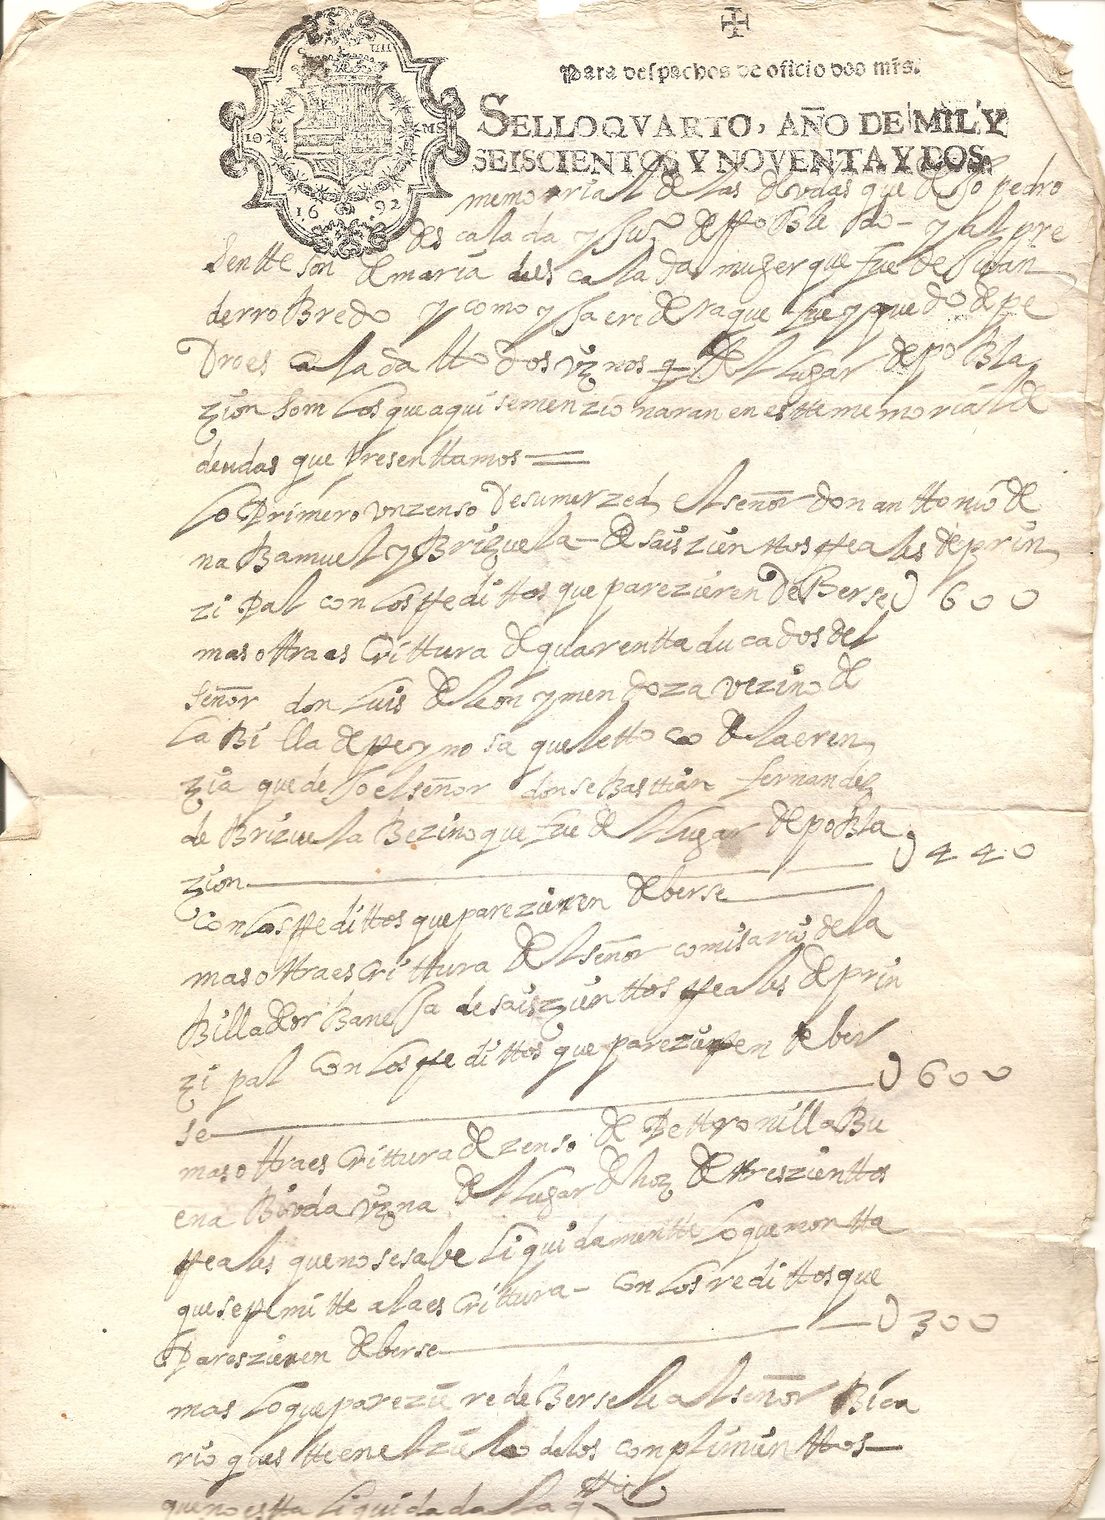 Para despachos de oficio dos mrs.
SELLO QVARTO, AÑO DE MIL Y
SEISCIENTOS Y NOVENTA Y DOS.
IIII
10 MS
16 92
memorial de las deudas que dejo pedro
descalada y
sentte son de maria descalada muger que fue de Juan
de rrobredo y como eredera que fue y quedo de pe
dro escalada tto dos vzos q del lugar de pobla
zion som los que aqui se menzionaran en estte memorial de
deudas que presenttamos
lo primero un zenso de su merzed el señor don anttonio de
na Bamuel y Brizuela de saiszienttos rreales de prin
zipal con los rredittos que parezieren deberse U 600
mas ottra escrittura de quarentta ducados del
señor don Luis de leon y mendoza vezino de
la Billa de rreynosa que le tto co de la eren
zia que dejo el señor don sebasttian fernandez
de Brizuela Bezino que fue del lugar de pobla
zion U 440
con los rredittos que parezieren deberse
mas ottra escrittura del señor comisario de la
Billa de or Baneja de saiszienttos rreales de prin
zipal con los rredittos que parezieren deber
se U 600
mas ottra escrittura de zenso de Pettronilla Bu
ena Biuda vzna del lugar de hoz de ttreszienttos
rreales que no se sabe liquidamentte lo que montta
que se rremitte a la escrittura con los redittos que
pareszieren deberse U 300
mas lo que pareziere deBersele al señor Bica
rio questte en el de los conplimienttos
que no estta liquidada la qttia